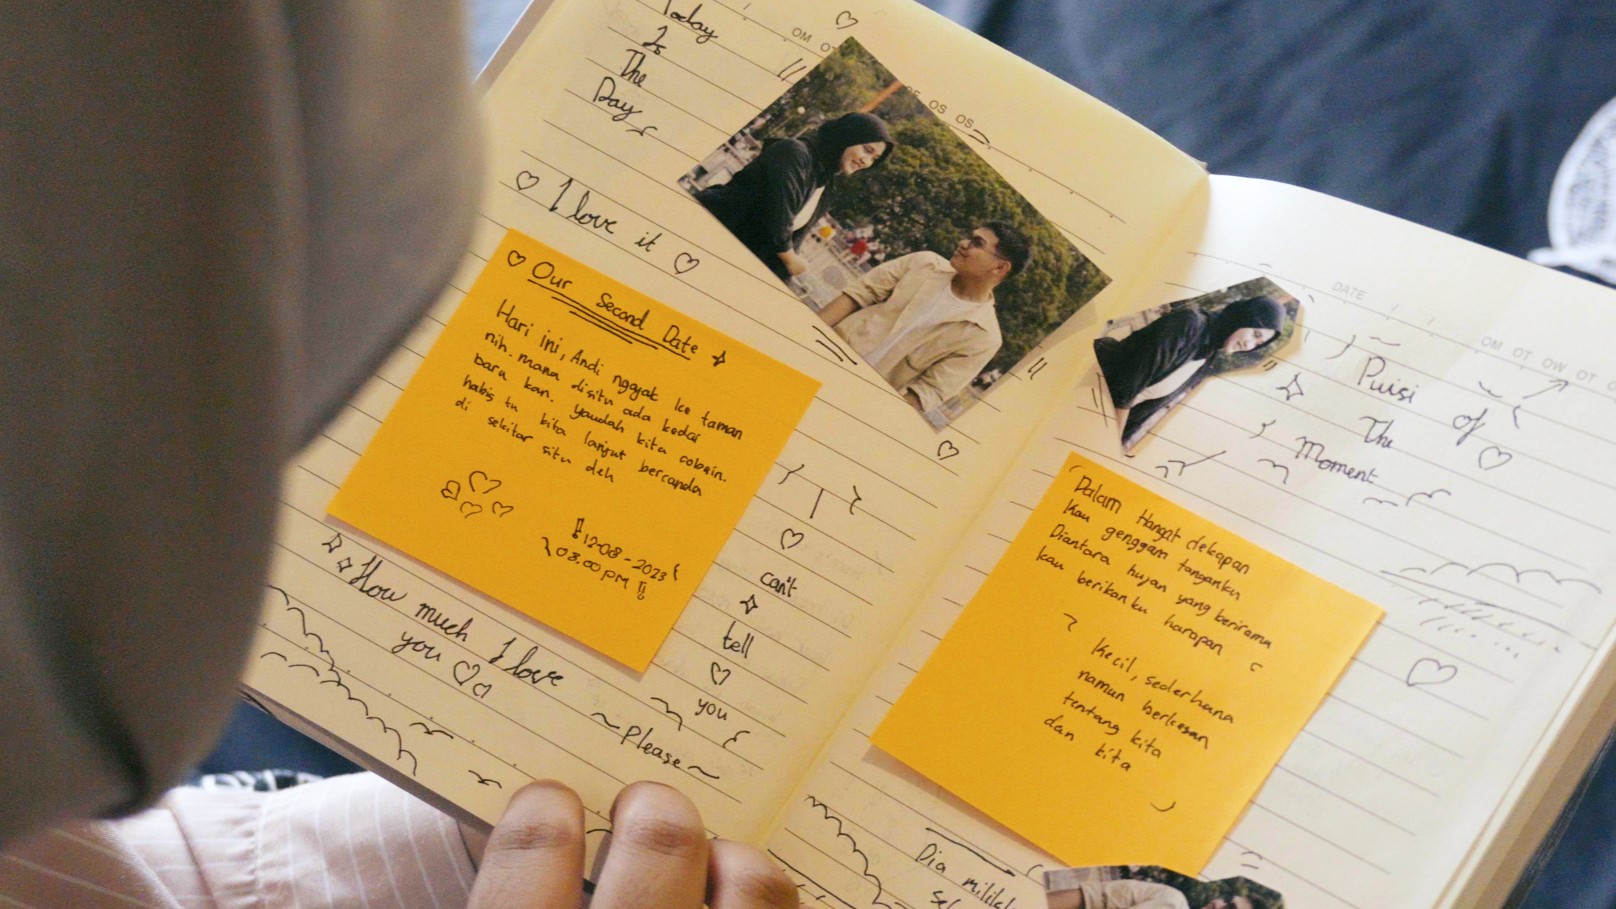 Today
Is
The
Day
I love it
Our Second Date
Hari ini, Andi ngajak ke taman
nih. mana disitu ada kedai
baru kan. yaudah kita cobain.
habis tu kita lanjut bercanda
di sekitar situ deh
12-08-2023
08.00 pm !!
I
can't
tell
you
How much I love
you
~please~
DATE
Puisi of
The
Moment
Dalam Hangat dekapan
Kau genggam tanganku
Diantara hujan yang berirama
kau berikanku harapan
Kecil, sederhana
namun berkesan
tentang kita
dan kita
Dia